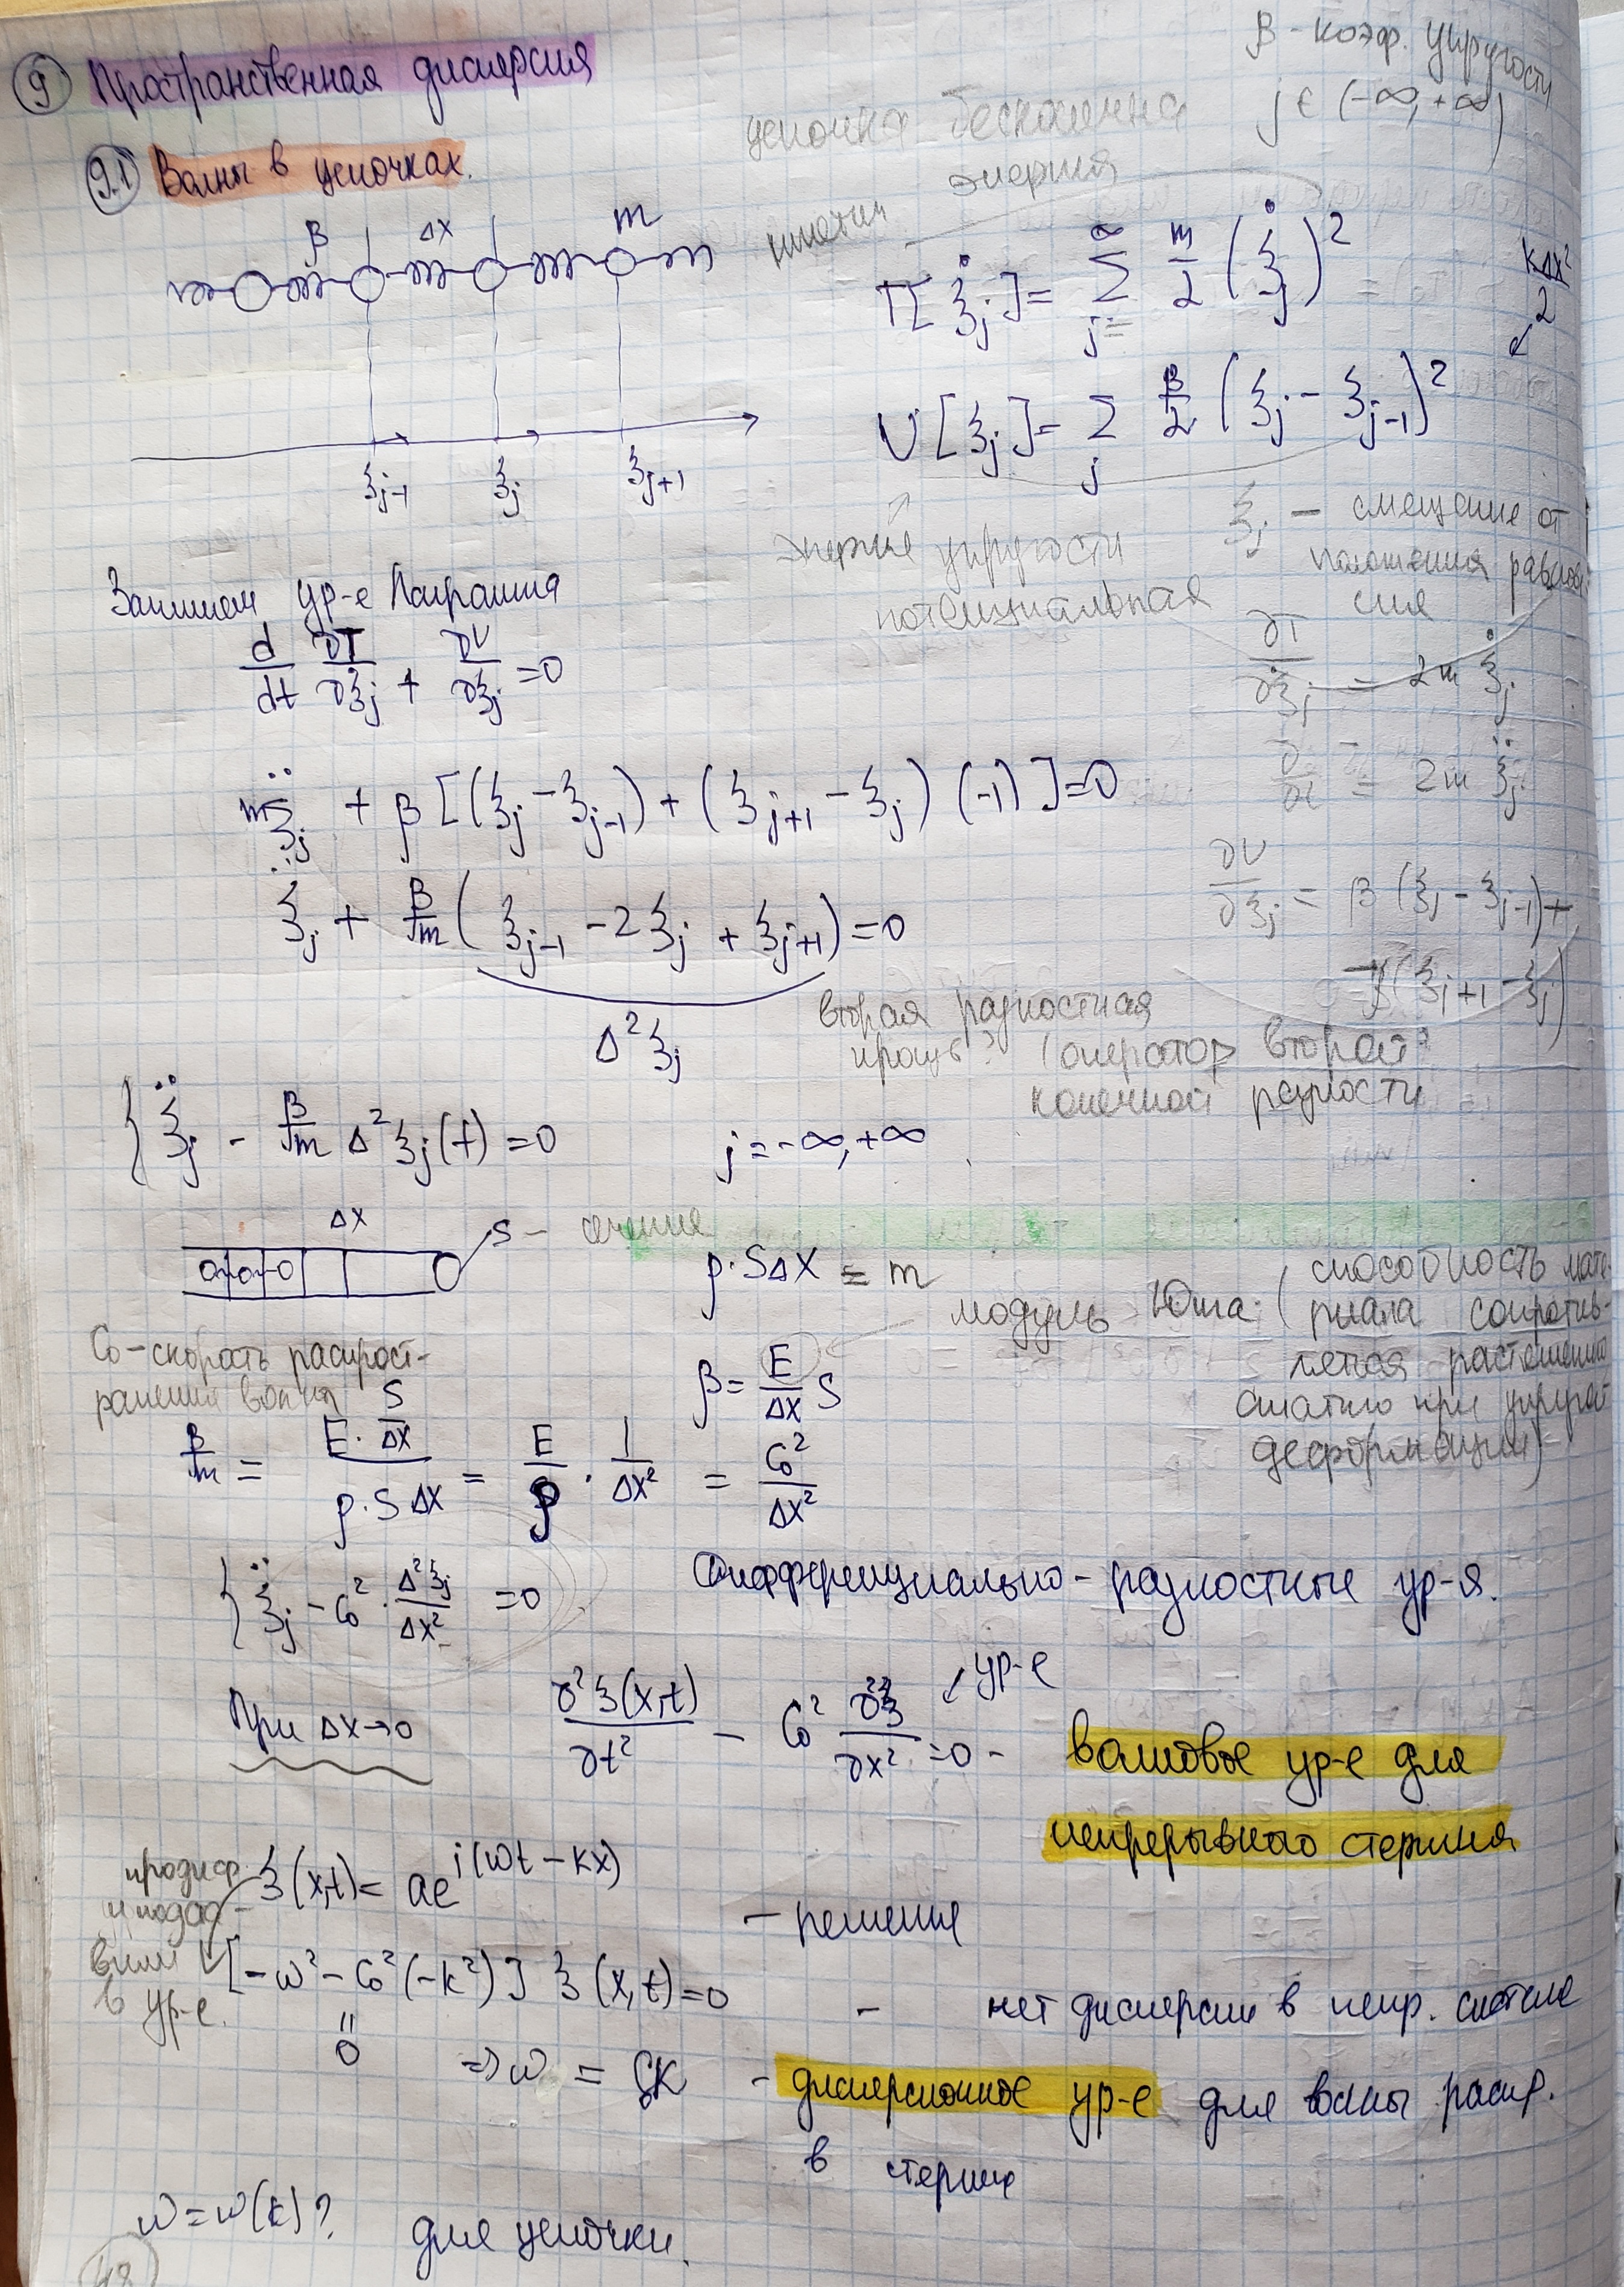 ⑨ Пространственная дисперсия
β - коэф. упругости
j ∈ (-∞, +∞)
цепочка бесконечна
9.1 Волны в цепочках.
энергия
β Δx m
T[ξ̇_j] = Σ_{j=}^{∞} m/2 (ξ̇_j)²
kΔx²/2
U[ξ_j] = Σ_j β/2 (ξ_j - ξ_{j-1})²
ξ_{j-1} ξ_j ξ_{j+1}
энергия упругости
потенциальная
ξ_j - смещение от
положения равнове
сия
Запишем ур-е Лагранжа
d/dt ∂T/∂ξ̇_j + ∂U/∂ξ_j = 0
∂T/∂ξ̇_j = 2m ξ̇_j
= 2m ξ̈_j
mξ̈_j + β[(ξ_j - ξ_{j-1}) + (ξ_{j+1} - ξ_j)(-1)] = 0
∂U/∂ξ_j = β(ξ_j - ξ_{j-1}) +
-β(ξ_{j+1} - ξ_j)
ξ̈_j + β/m (ξ_{j-1} - 2ξ_j + ξ_{j+1}) = 0
Δ²ξ_j
вторая разностная
(оператор второй
конечной разности
{ ξ̈_j - β/m Δ²ξ_j(t) = 0
j = -∞, +∞
Δx
S - сечение
ρ·SΔx = m
модуль Юнга (способность мате-
риала сопротив-
ления растяжению
сжатию при упругой
деформации)
C₀ - скорость распрост-
ранения волны
β = E/Δx S
β/m = (E · S/Δx)/(ρ·SΔx) = E/ρ · 1/Δx² = C₀²/Δx²
{ ξ̈_j - C₀² · Δ²ξ_j/Δx² = 0
Дифференциально-разностные ур-я.
При Δx→0
∂²ξ(x,t)/∂t² - C₀² ∂²ξ/∂x² = 0 -
ур-е
волновое ур-е для
непрерывного стержня
продиф.
и подста-
вим
в ур-е.
ξ(x,t) = ae^{i(ωt - kx)}
- решение
[-ω² - C₀²(-k²)] ξ(x,t) = 0
- нет дисперсии в непр. системе
=
0
⇒ ω = C₀k - дисперсионное ур-е для волны распр.
в стержне
ω = ω(k)? для цепочки.
48